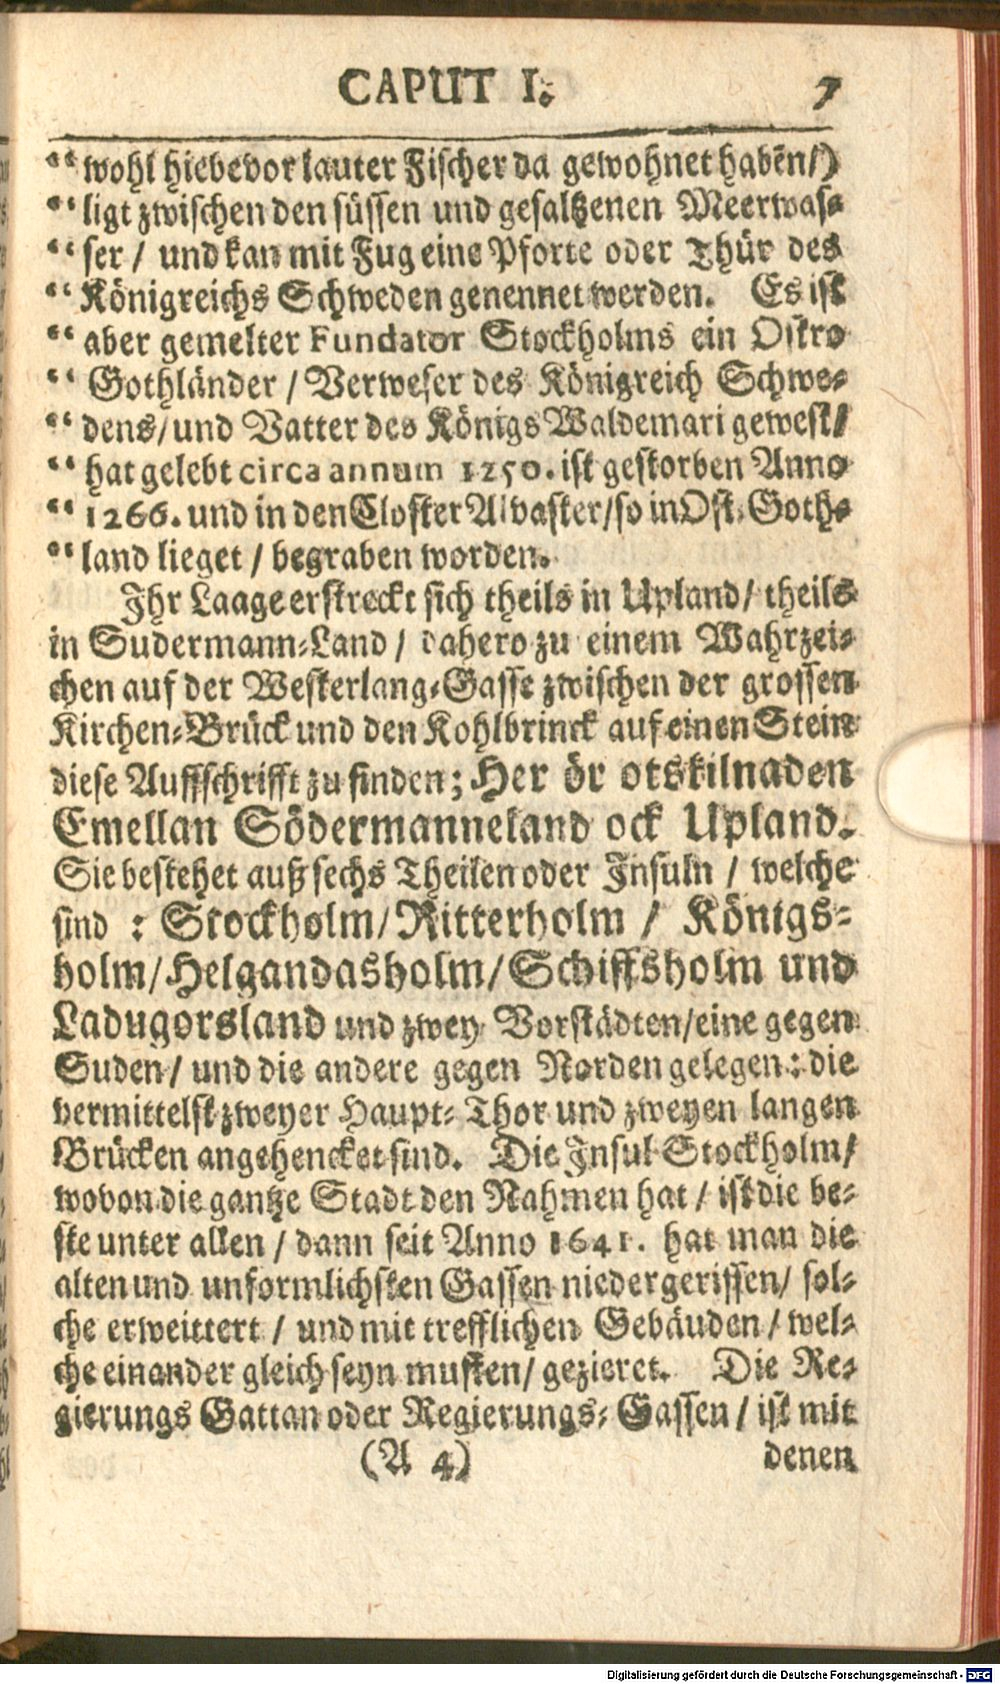 CAPUT I. 7
“wohl hiebevor lauter Fischer da gewohnet habẽn/)
“ligt zwischen den süssen und gesaltzenen Meerwas-
“ser / und kan mit Fug eine Pforte oder Thür des
“Königreichs Schweden genennet werden. Es ist
“aber gemelter Fundator Stockholms ein Ostro-
“Gothländer / Verweser des Königreich Schwe-
“dens/ und Vatter des Königs Waldemari gewest/
“hat gelebt circa annum 1250. ist gestorben Anno
“1266. und in den Closter Alvaster/ so in Ost-Goth-
“land lieget / begraben worden.
Ihr Laage erstreckt sich theils in Upland/ theils
in Sudermann-Land / dahero zu einem Wahrzei-
chen auf der Westerlang-Gasse zwischen der grossen
Kirchen-Brück und den Kohlbrinck auf einen Stein
diese Auffschrifft zu finden; Her ör otskilnaden
Emellan Södermanneland ock Upland.
Sie bestehet auß sechs Theilen oder Insuln / welche
sind : Stockholm/ Ritterholm / Königs-
holm/ Helgandasholm/ Schiffsholm und
Ladugorsland und zwey Vorstädten/ eine gegen
Suden/ und die andere gegen Norden gelegen: die
vermittelst zweyer Haupt-Thor und zweyen langen
Brücken angehencket sind. Die Insul Stockholm/
wovon die gantze Stadt den Nahmen hat / ist die be-
ste unter allen / dann seit Anno 1641. hat man die
alten und unformlichsten Gassen niedergerissen/ sol-
che erweittert / und mit trefflichen Gebäuden / wel-
che einander gleich seyn musten/ gezieret. Die Re-
gierungs Gattan oder Regierungs-Gassen / ist mit
(A 4) denen
Digitalisierung gefördert durch die Deutsche Forschungsgemeinschaft - DFG